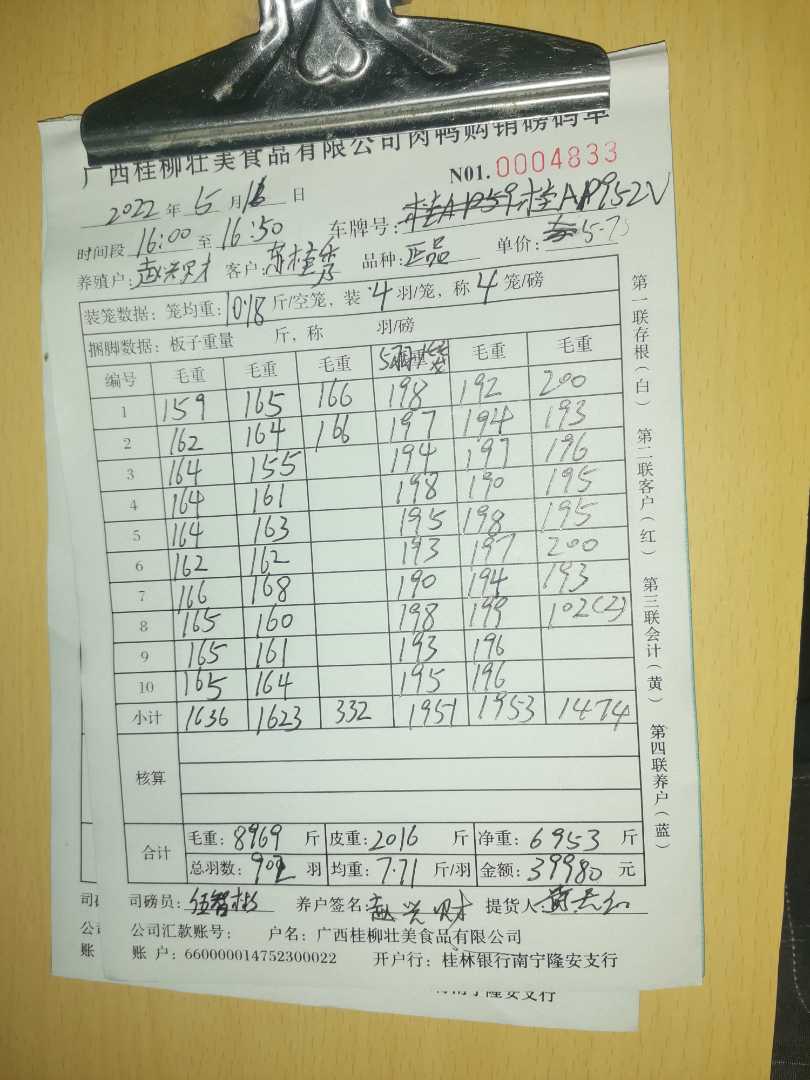 广西桂柳壮美食品有限公司肉鸭购销磅码单
N01.0004833
2022年5月16日
时间段16:00至16:50 车牌号:桂AP952V
养殖户:赵兴财 客户: 品种:正品 单价:5.75
装笼数据:笼均重:10.18斤/空笼,装4羽/笼,称4笼/磅
捆脚数据:板子重量 斤,称 羽/磅
编号 毛重 毛重 毛重 5羽/笼 毛重 毛重
1 159 165 166 198 192 200
2 162 164 166 197 194 193
3 164 155 194 197 196
4 164 161 198 190 195
5 164 163 195 198 195
6 162 162 193 197 200
7 166 168 190 194 193
8 165 160 198 199 102(2)
9 165 161 193 196
10 165 164 195 196
小计 1636 1623 332 1951 1953 1474
核算
合计 毛重:8969斤 皮重:2016斤 净重:6953斤
总羽数:902羽 均重:7.71斤/羽 金额:39980元
司磅员:伍智彬 养户签名:赵兴财 提货人:
公司汇款账号: 户名:广西桂柳壮美食品有限公司
账户:660000014752300022 开户行:桂林银行南宁隆安支行
第一联存根(白) 第二联客户(红) 第三联会计(黄) 第四联养户(蓝)
司
公
账
南宁隆安支行